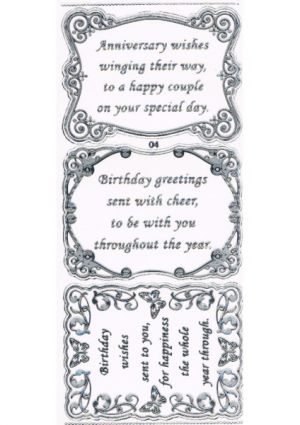 Anniversary wishes
winging their way,
to a happy couple
on your special day.
04
Birthday greetings
sent with cheer,
to be with you
throughout the year.
Birthday
wishes
sent to you,
for happiness
the whole
year through.